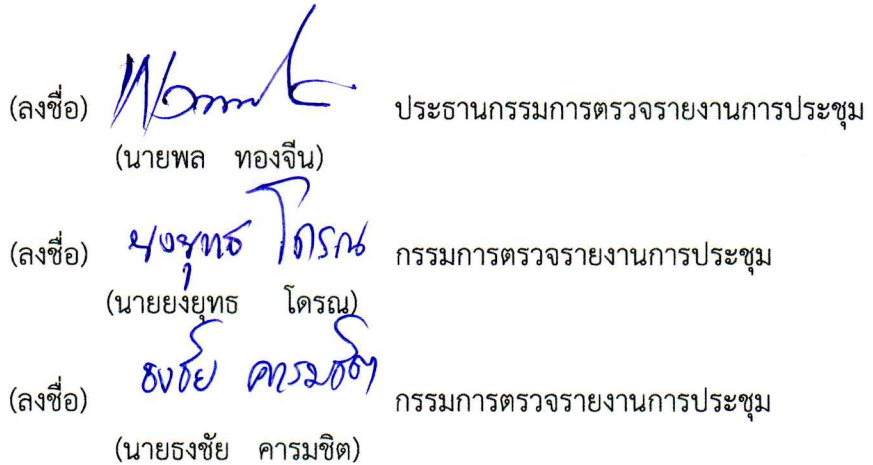 (ลงชื่อ) ประธานกรรมการตรวจรายงานการประชุม
(นายพล ทองจีน)
(ลงชื่อ) ยงยุทธ โดรณ กรรมการตรวจรายงานการประชุม
(นายยงยุทธ โดรณ)
(ลงชื่อ) ธงชัย คารมชิต กรรมการตรวจรายงานการประชุม
(นายธงชัย คารมชิต)